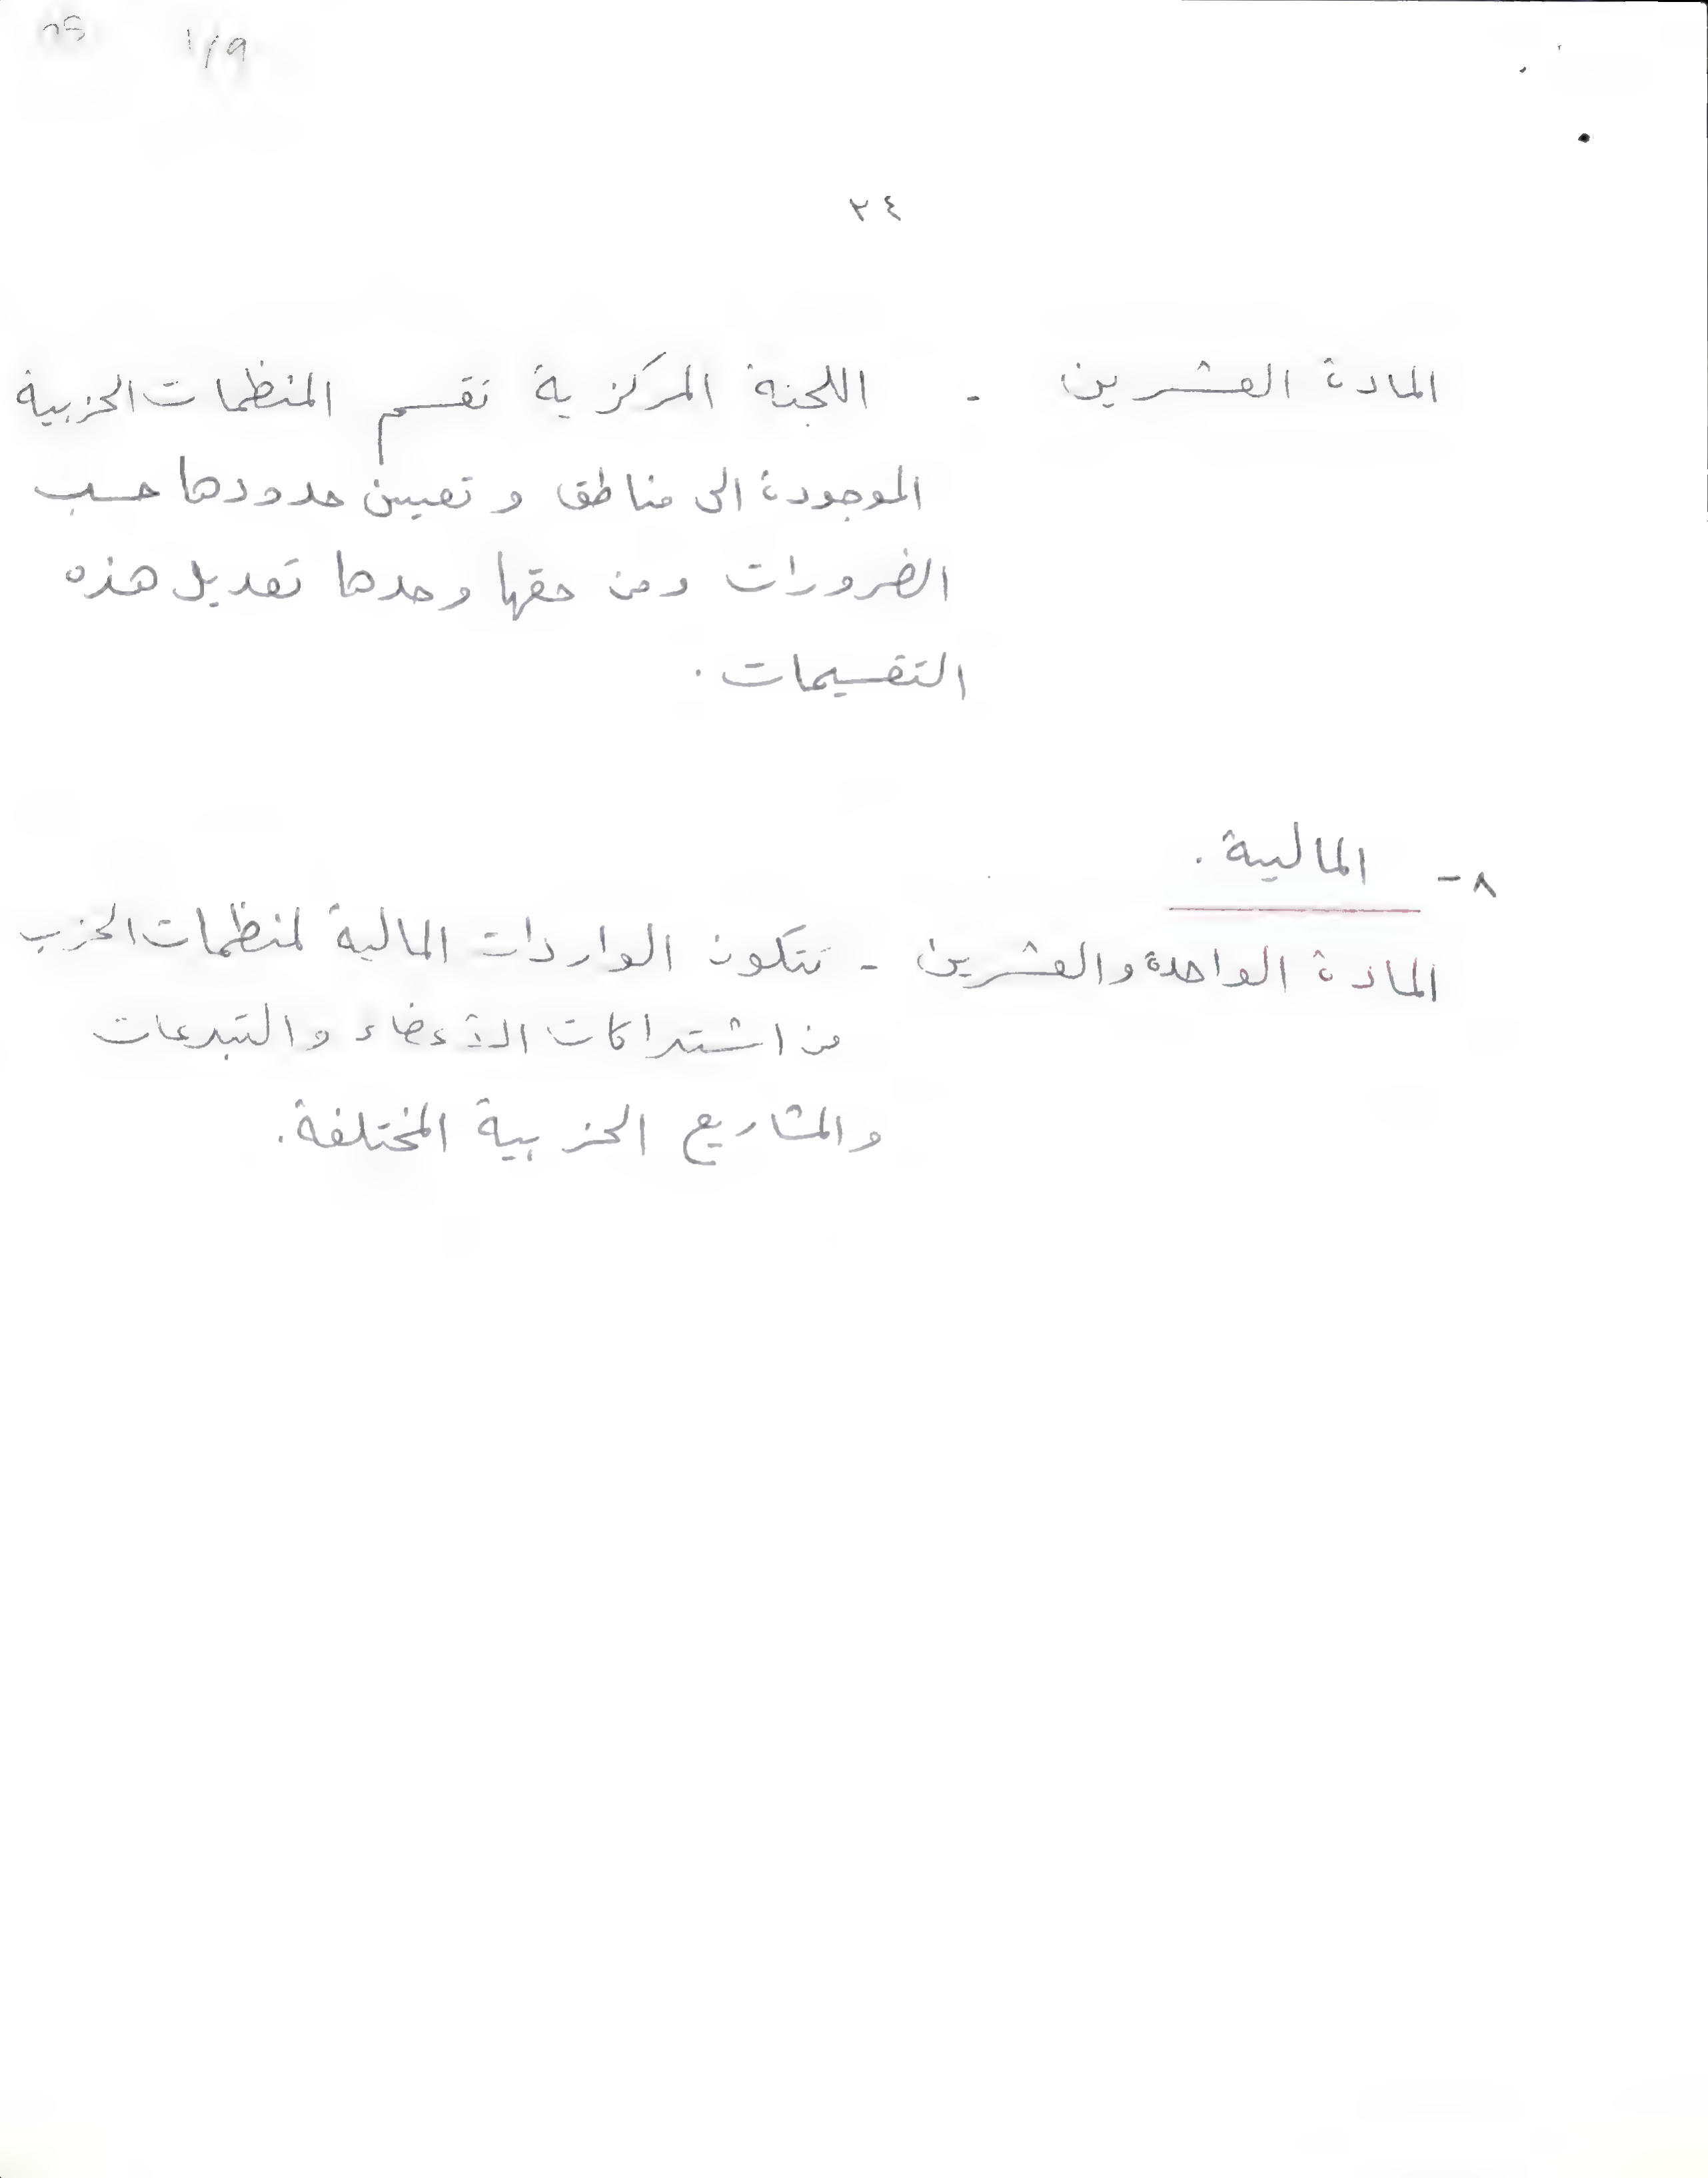 ١/٩
٢٤
المادة العشرين - اللجنة المركزية تقسم المنظمات الحزبية
الموجودة الى مناطق و تعيين حدودها حسب
الضرورات ومن حقها وحدها تعديل هذه
التقسيمات .
٨ - المالية .
المادة الواحدة والعشرين - تتكون الواردات المالية لمنظمات الحزب
من اشتراكات الأعضاء والتبرعات
والمشاريع الحزبية المختلفة .